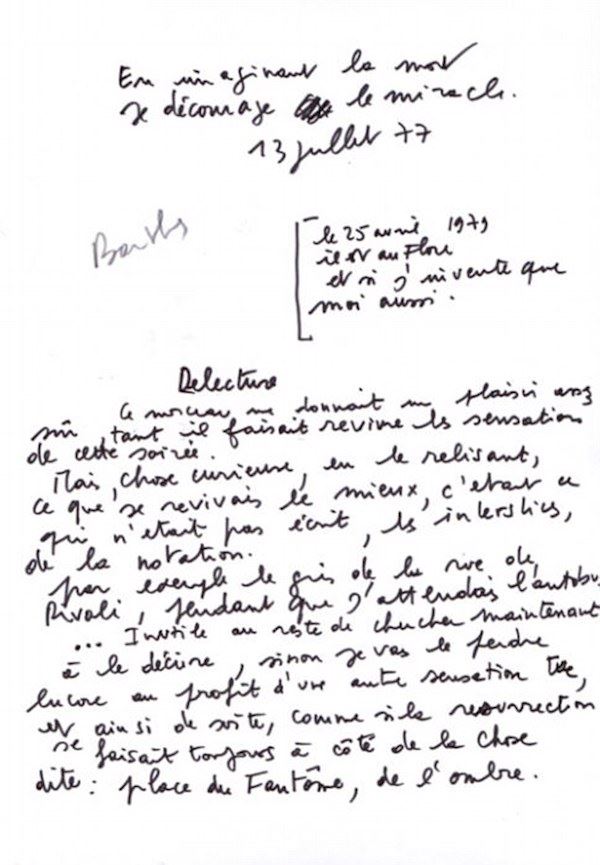 En imaginant la mort
je décourage le miracle.
13 juillet 77
Barthes
le 25 avril 1979
il est au Flore
et si j'invente que
moi aussi.
Relecture
Ce morceau me donnait un plaisir assez
sûr, tant il faisait revivre les sensations
de cette soirée.
Mais, chose curieuse, en le relisant,
ce que je revivais le mieux, c'était ce
qui n'était pas écrit, les interstices,
de la notation.
par exemple le gris de la rue de
Rivoli, pendant que j'attendais l'autobus
... Inutile au reste de chercher maintenant
à le décrire, sinon je vais le perdre
encore au profit d'une autre sensation tue,
et ainsi de suite, comme si la résurrection
se faisait toujours à côté de la chose
dite : place du Fantôme, de l'ombre.